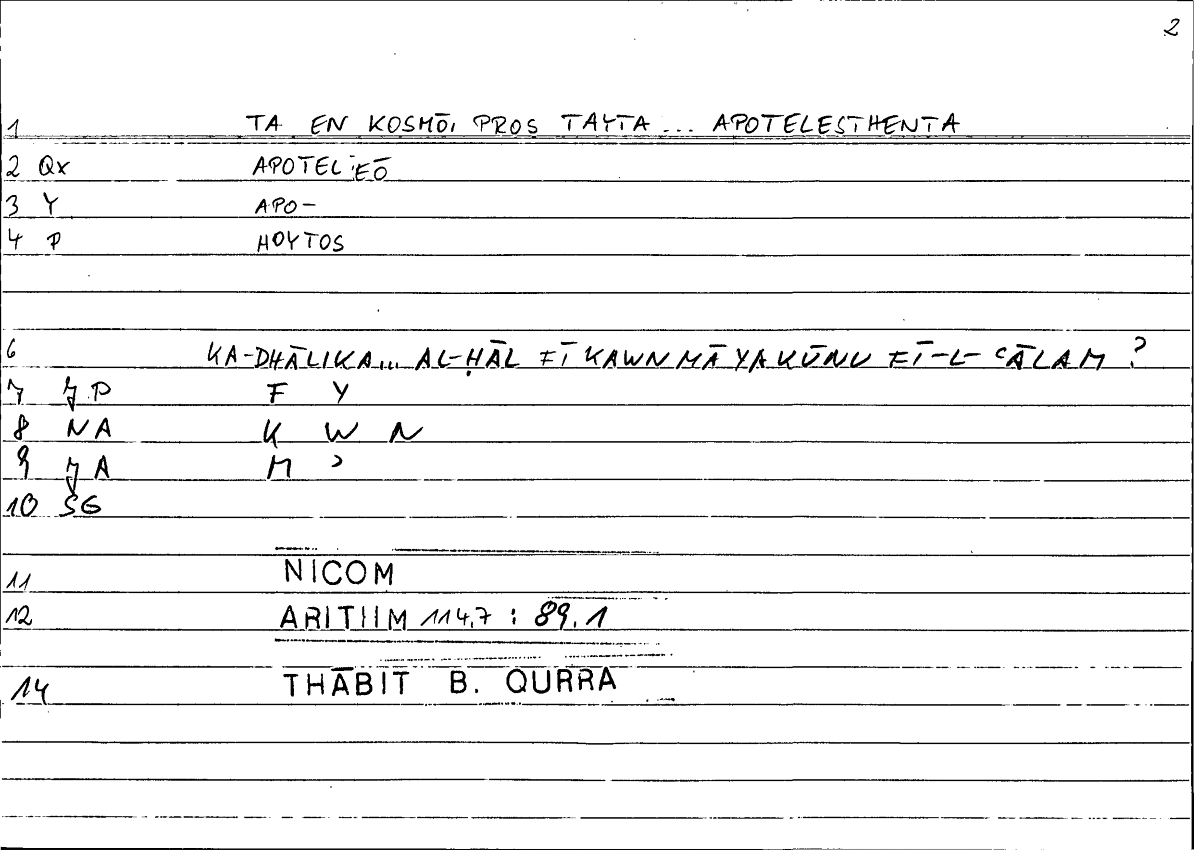 2
1 TA EN KOSMŌI PROS TAYTA ... APOTELESTHENTA
2 Qx APOTELEŌ
3 Y APO-
4 P HOYTOS
6 KA-DHĀLIKA... AL-ḤĀL FĪ KAWN MĀ YAKŪNU FĪ-L-ʿĀLAM ?
7 P F Y
8 NA K W N
9 A M ʾ
10 SG
11 NICOM
12 ARITHM 114,7 : 89.1
14 THĀBIT B. QURRA